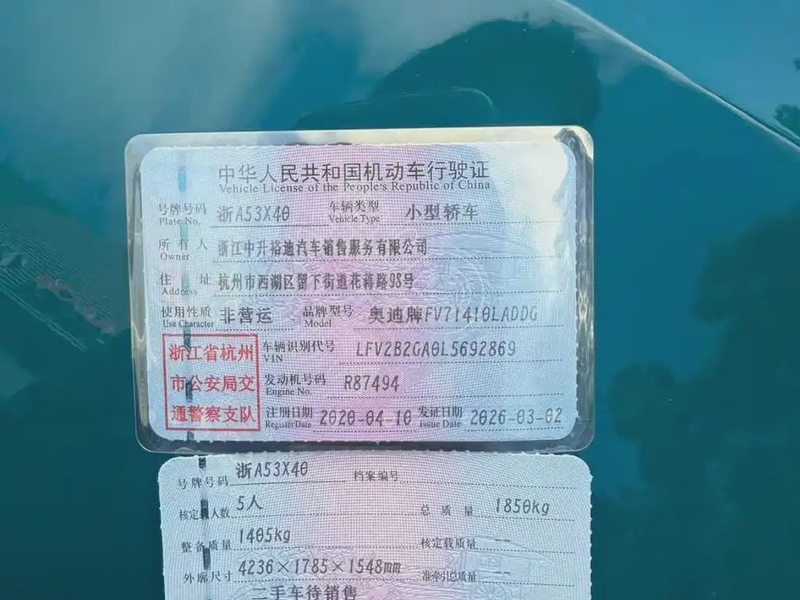 中华人民共和国机动车行驶证
Vehicle License of the People's Republic of China
号牌号码 Plate No. 浙A53X40 车辆类型 Vehicle Type 小型轿车
所有人 Owner 浙江中升裕迪汽车销售服务有限公司
住址 Address 杭州市西湖区留下街道花蒋路98号
使用性质 Use Character 非营运 品牌型号 Model 奥迪牌FV71410LADDG
浙江省杭州
市公安局交
通警察支队
车辆识别代号 VIN LFV2B2GA0L5692869
发动机号码 Engine No. R87494
注册日期 Register Date 2020-04-10 发证日期 Issue Date 2026-03-02
号牌号码 浙A53X40 档案编号
核定载人数 5人 总质量 1850kg
整备质量 1405kg 核定载质量 --
外廓尺寸 4236×1785×1548mm 准牵引总质量 --
二手车待销售